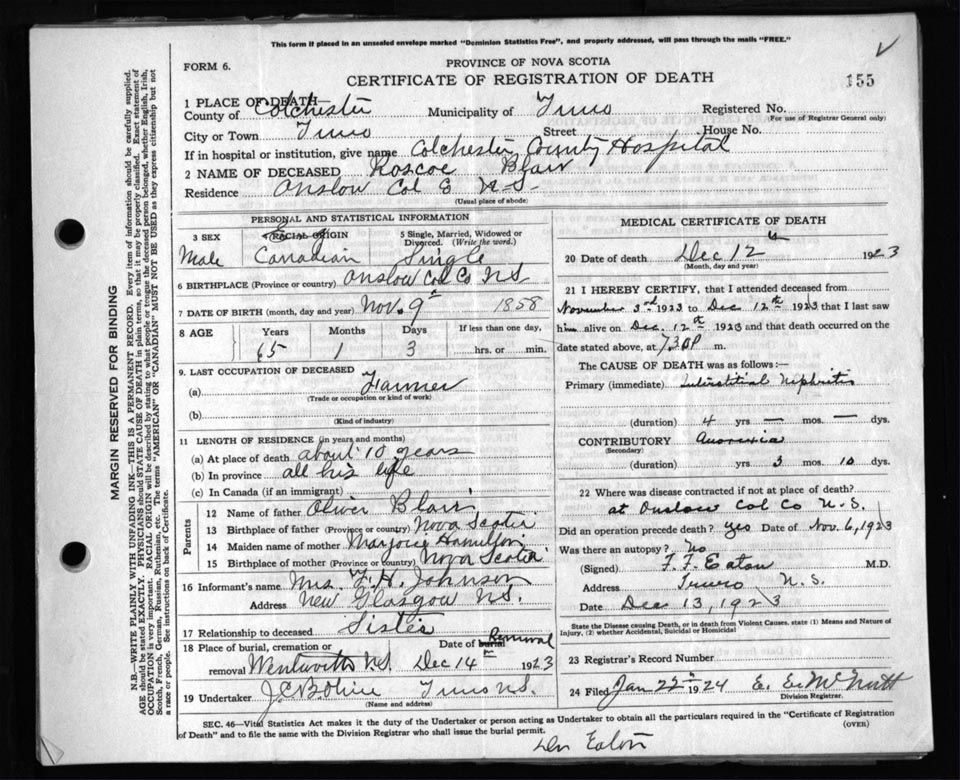 This form if placed in an unsealed envelope marked "Dominion Statistics Free", and properly addressed, will pass through the mails "FREE."
FORM 6.
PROVINCE OF NOVA SCOTIA
CERTIFICATE OF REGISTRATION OF DEATH
155
1 PLACE OF DEATH
County of Colchester Municipality of Truro Registered No.
(For use of Registrar General only)
City or Town Truro Street House No.
If in hospital or institution, give name Colchester County Hospital
2 NAME OF DECEASED Roscoe Blair
Residence Onslow Col Co N S
(Usual place of abode)
PERSONAL AND STATISTICAL INFORMATION
3 SEX Male
RACIAL ORIGIN Canadian
5 Single, Married, Widowed or Divorced. (Write the word.) Single
6 BIRTHPLACE (Province or country) Onslow Col Co NS
7 DATE OF BIRTH (month, day and year) Nov. 9th 1858
8 AGE Years Months Days If less than one day,
65 1 3 hrs. or min.
9. LAST OCCUPATION OF DECEASED
(a) Farmer
(Trade or occupation or kind of work)
(b)
(Kind of industry)
11 LENGTH OF RESIDENCE (in years and months)
(a) At place of death about 10 years
(b) In province all his life
(c) In Canada (if an immigrant)
Parents
12 Name of father Oliver Blair
13 Birthplace of father (Province or country) Nova Scotia
14 Maiden name of mother Marjorie Hamilton
15 Birthplace of mother (Province or country) Nova Scotia
16 Informant's name Mrs. F. H. Johnson
Address New Glasgow NS.
17 Relationship to deceased Sister
18 Place of burial, cremation or Date of burial Removal
removal Wentworth N.S. Dec 14 1923
19 Undertaker Truro N.S.
(Name and address)
MEDICAL CERTIFICATE OF DEATH
20 Date of death Dec 12 1923
(Month, day and year)
21 I HEREBY CERTIFY, that I attended deceased from
November 3rd 1923 to Dec 12th 1923 that I last saw
him alive on Dec. 12th 1923 and that death occurred on the
date stated above, at 7.30 P m.
The CAUSE OF DEATH was as follows:—
Primary (immediate) Interstitial Nephritis
(duration) 4 yrs — mos. — dys.
CONTRIBUTORY
(Secondary)
(duration) yrs 3 mos. 10 dys.
22 Where was disease contracted if not at place of death?
at Onslow Col Co N.S.
Did an operation precede death? yes Date of Nov. 6, 1923
Was there an autopsy? No
(Signed) F. F. Eaton M.D.
Address Truro N.S.
Date Dec 13, 1923
State the Disease causing Death, or in death from Violent Causes, state (1) Means and Nature of
Injury, (2) whether Accidental, Suicidal or Homicidal
23 Registrar's Record Number
24 Filed Jan 22 1924 E. E. McNutt
Division Registrar.
(OVER)
SEC. 46—Vital Statistics Act makes it the duty of the Undertaker or person acting as Undertaker to obtain all the particulars required in the "Certificate of Registration
of Death" and to file the same with the Division Registrar who shall issue the burial permit.
Dr Eaton
MARGIN RESERVED FOR BINDING
N.B.—WRITE PLAINLY WITH UNFADING INK—THIS IS A PERMANENT RECORD. Every item of information should be carefully supplied.
AGE should be stated EXACTLY. PHYSICIANS should STATE CAUSE OF DEATH in plain terms, so that it may be properly classified. Exact statement of
OCCUPATION is very important. RACIAL ORIGIN will be described by stating to what people or tongue the deceased person belonged, whether English, Irish,
Scotch, French, German, Russian, Ruthenian, etc. The terms "AMERICAN" OR "CANADIAN" MUST NOT BE USED as they express citizenship but not
a race or people. See instructions on back of Certificate.